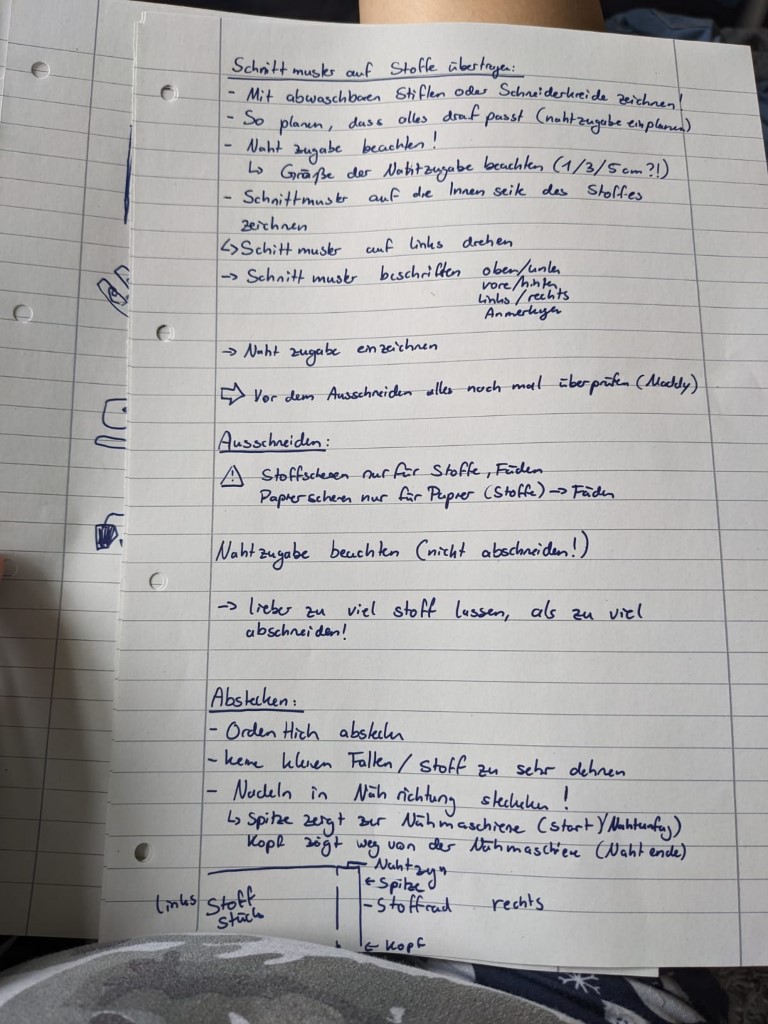 Schnittmuster auf Stoffe übertragen:
- Mit abwaschbaren Stiften oder Schneiderkreide zeichnen!
- So planen, dass alles drauf passt (nahtzugabe einplanen)
- Naht zugabe beachten!
↳ Größe der Nahtzugabe beachten (1/3/5cm?!)
- Schnittmuster auf die Innen seite des Stoffes
zeichnen
↳ Schittmuster auf links drehen
→ Schnittmuster beschriften oben/unten
vore/hinten
Links/rechts
Anmerkungen
→ Naht zugabe einzeichnen
⇨ Vor dem Ausschneiden alles noch mal überprüfen (Maddy)
Ausschneiden:
⚠ Stoffscheren nur für Stoffe, Fäden
Papierscheren nur für Papier (Stoffe) → Fäden
Nahtzugabe beachten (nicht abschneiden!)
→ lieber zu viel stoff lassen, als zu viel
abschneiden!
Abstecken:
- Ordentlich abstecken
- keine kleinen Falten / Stoff zu sehr dehnen
- Nadeln in Näh richtung stecken!
↳ Spitze zeigt zur Nähmaschiene (Start)/Nahtanfag)
Kopf zeigt weg von der Nähmaschiene (Naht ende)
Nahtzug
← Spitze
links Stoff - Stoffrad rechts
stück
← Kopf